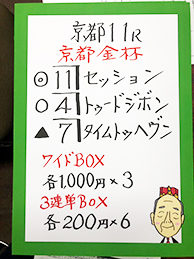 京都11R
京都金杯
◎11セッション
○4トゥードジボン
▲7タイムトゥヘヴン
ワイドBOX
各1,000円×3
3連単BOX
各200円×6